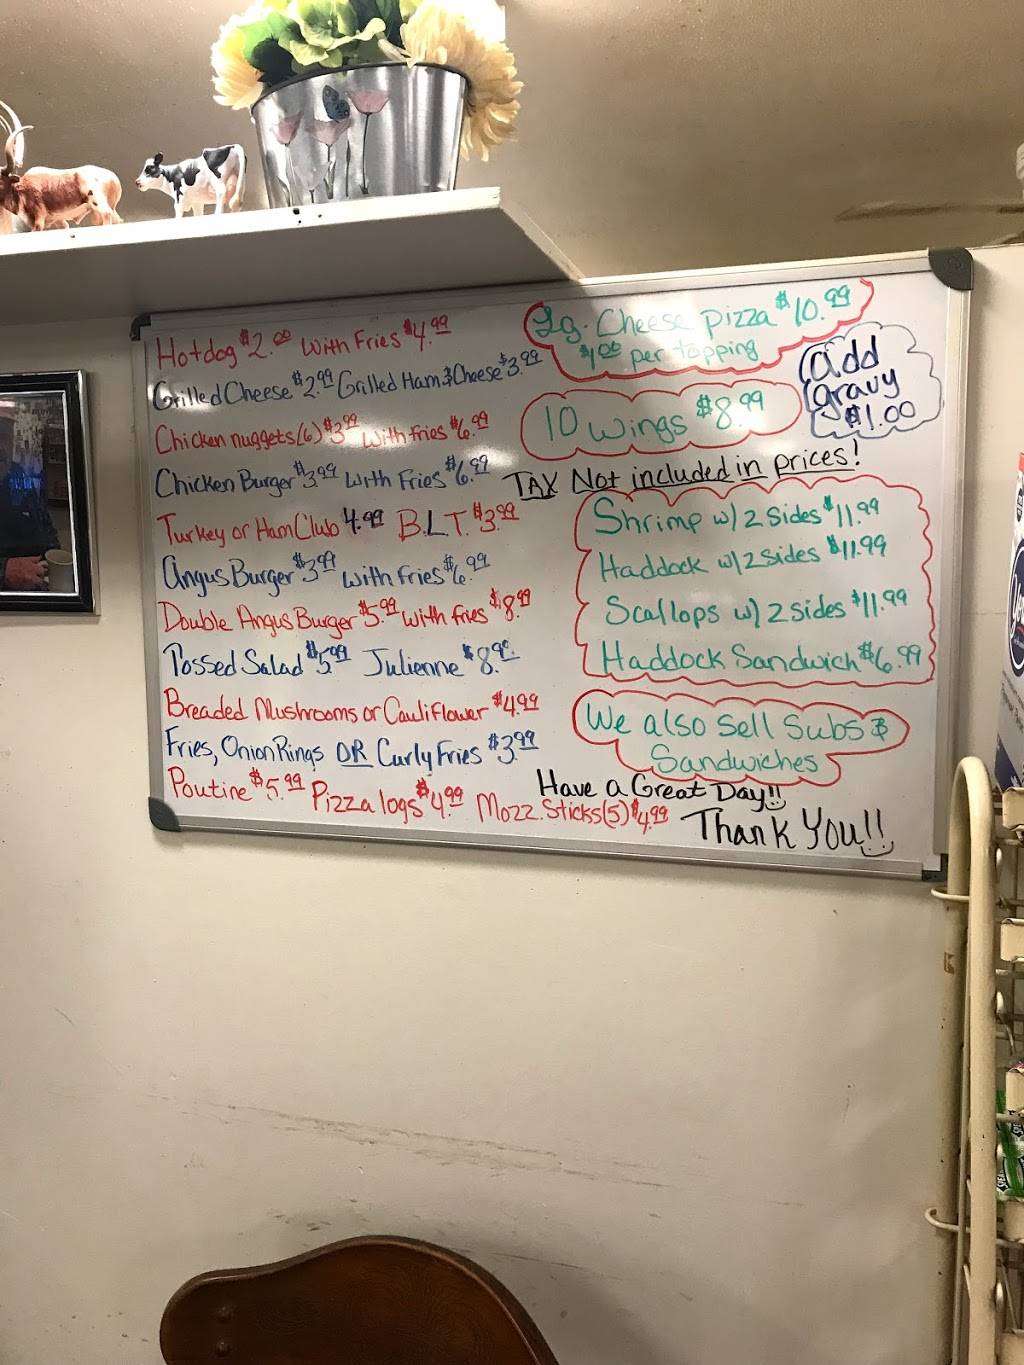 Hotdog $2.00 with Fries $4.99
Grilled Cheese $2.99 Grilled Ham & Cheese $3.99
Chicken nuggets (6) $3.99 with fries $6.99
Chicken Burger $3.99 with Fries $6.99
Turkey or Ham Club 4.99 B.L.T. $3.99
Angus Burger $3.99 with fries $6.99
Double Angus Burger $5.99 with fries $8.99
Tossed Salad $5.99 Julienne $8.99
Breaded Mushrooms or Cauliflower $4.99
Fries, Onion Rings OR Curly Fries $3.99
Poutine $5.99 Pizza logs $4.99 Mozz. Sticks (5) $4.99
Lg. Cheese pizza $10.99
$1.00 per topping
add
gravy
$1.00
10 wings $8.99
TAX Not included in prices!
Shrimp w/ 2 Sides $11.99
Haddock w/ 2 sides $11.99
Scallops w/ 2 sides $11.99
Haddock Sandwich $6.99
We also sell Subs &
Sandwiches
Have a Great Day!!
Thank You!!